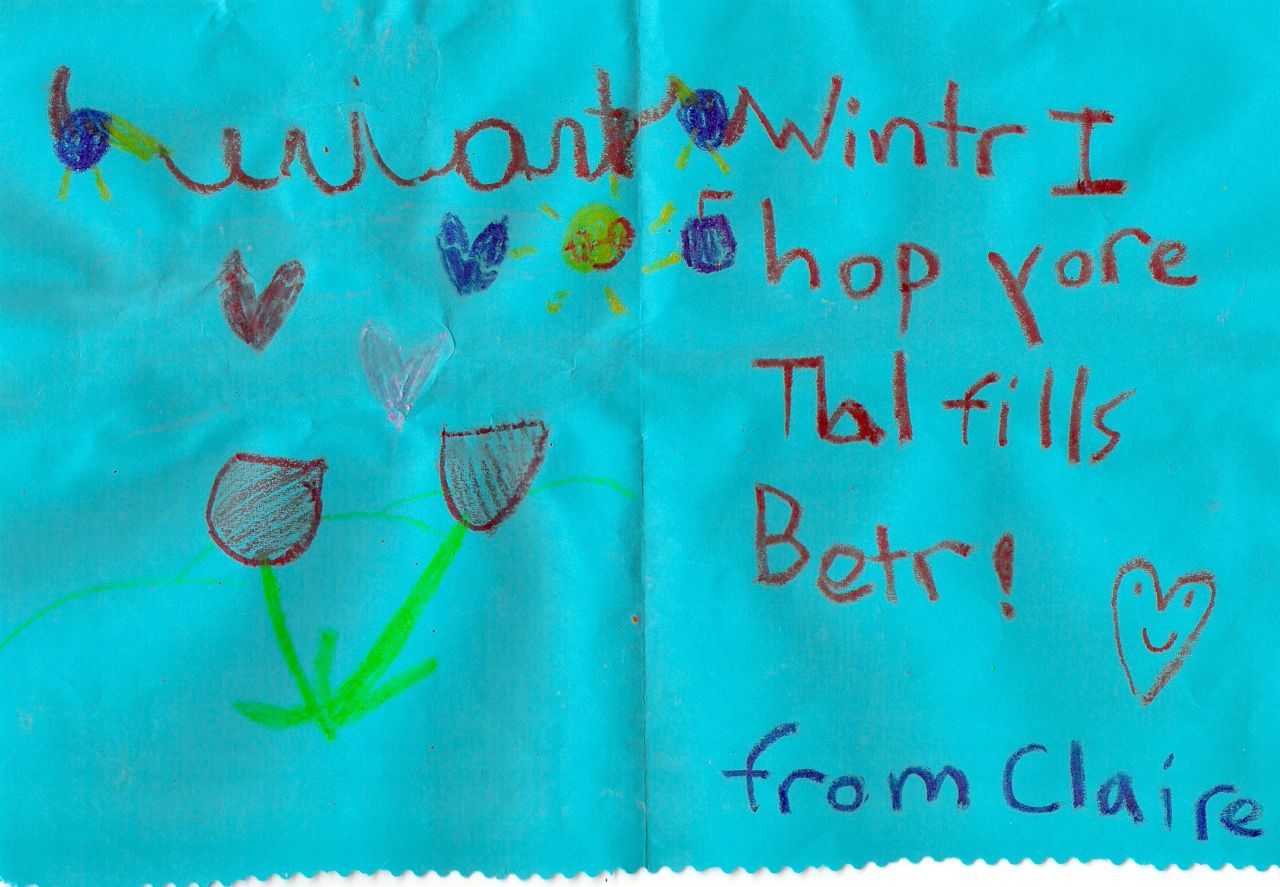 Wintr I
hop yore
Tbal fills
Betr!
from Claire